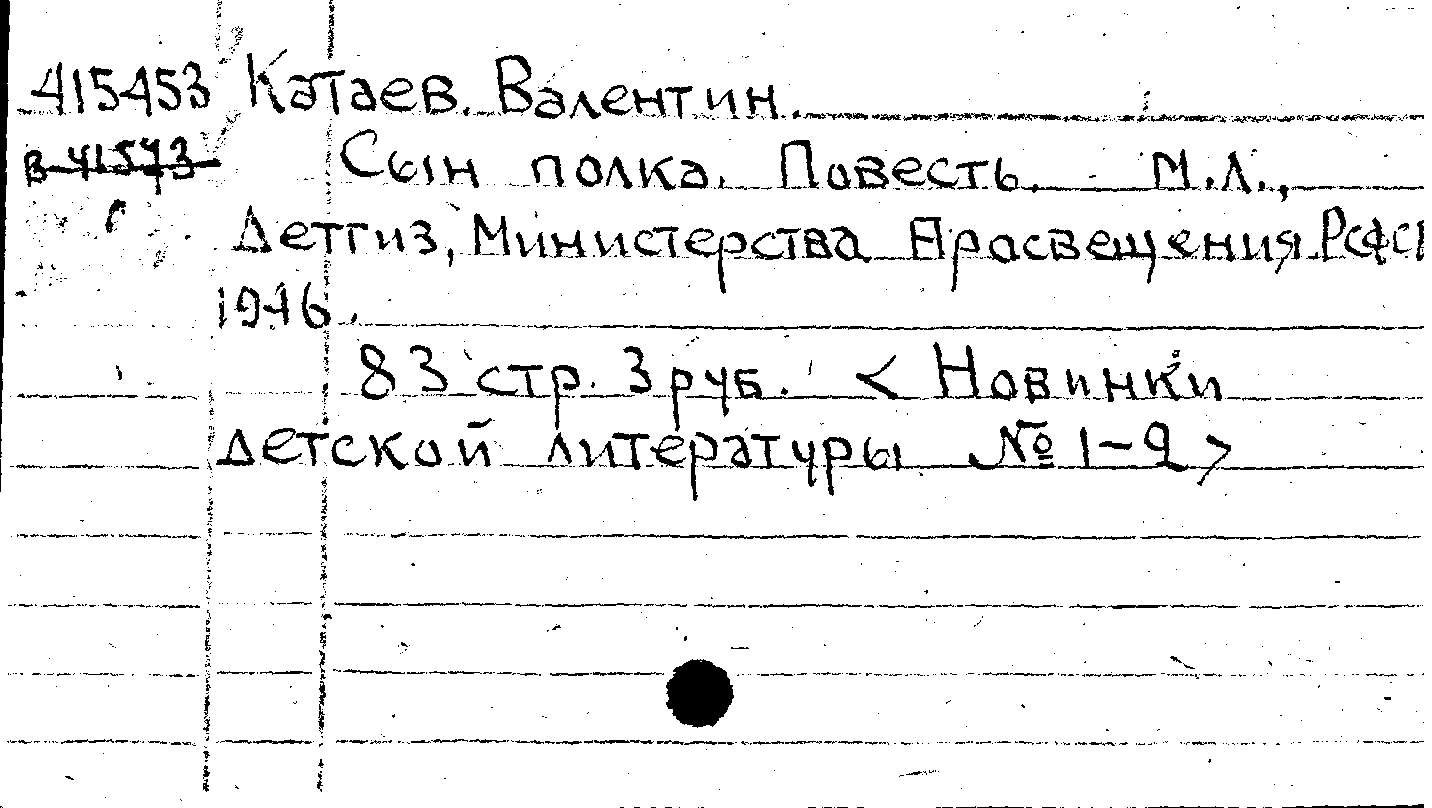 415453 Катаев. Валентин.
В 41573 Сын полка. Повесть. М.Л.,
Детгиз, Министерства Просвещения РСФС
1946.
83 стр. 3 руб. < Новинки
детской литературы № 1-2 >